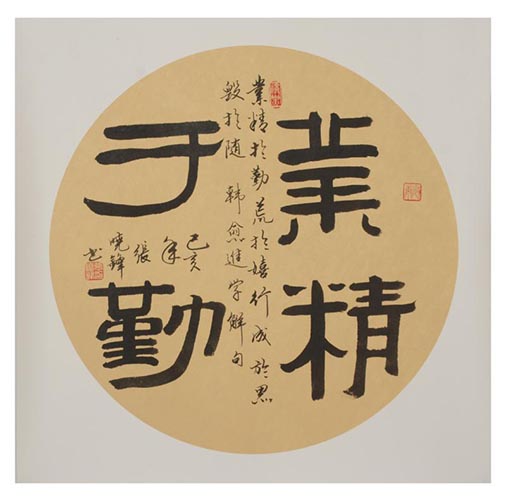 業精
于勤
業精於勤荒於嬉行成於思
毀於随 韩愈進学解句
己亥
年
張
曉鋒
书